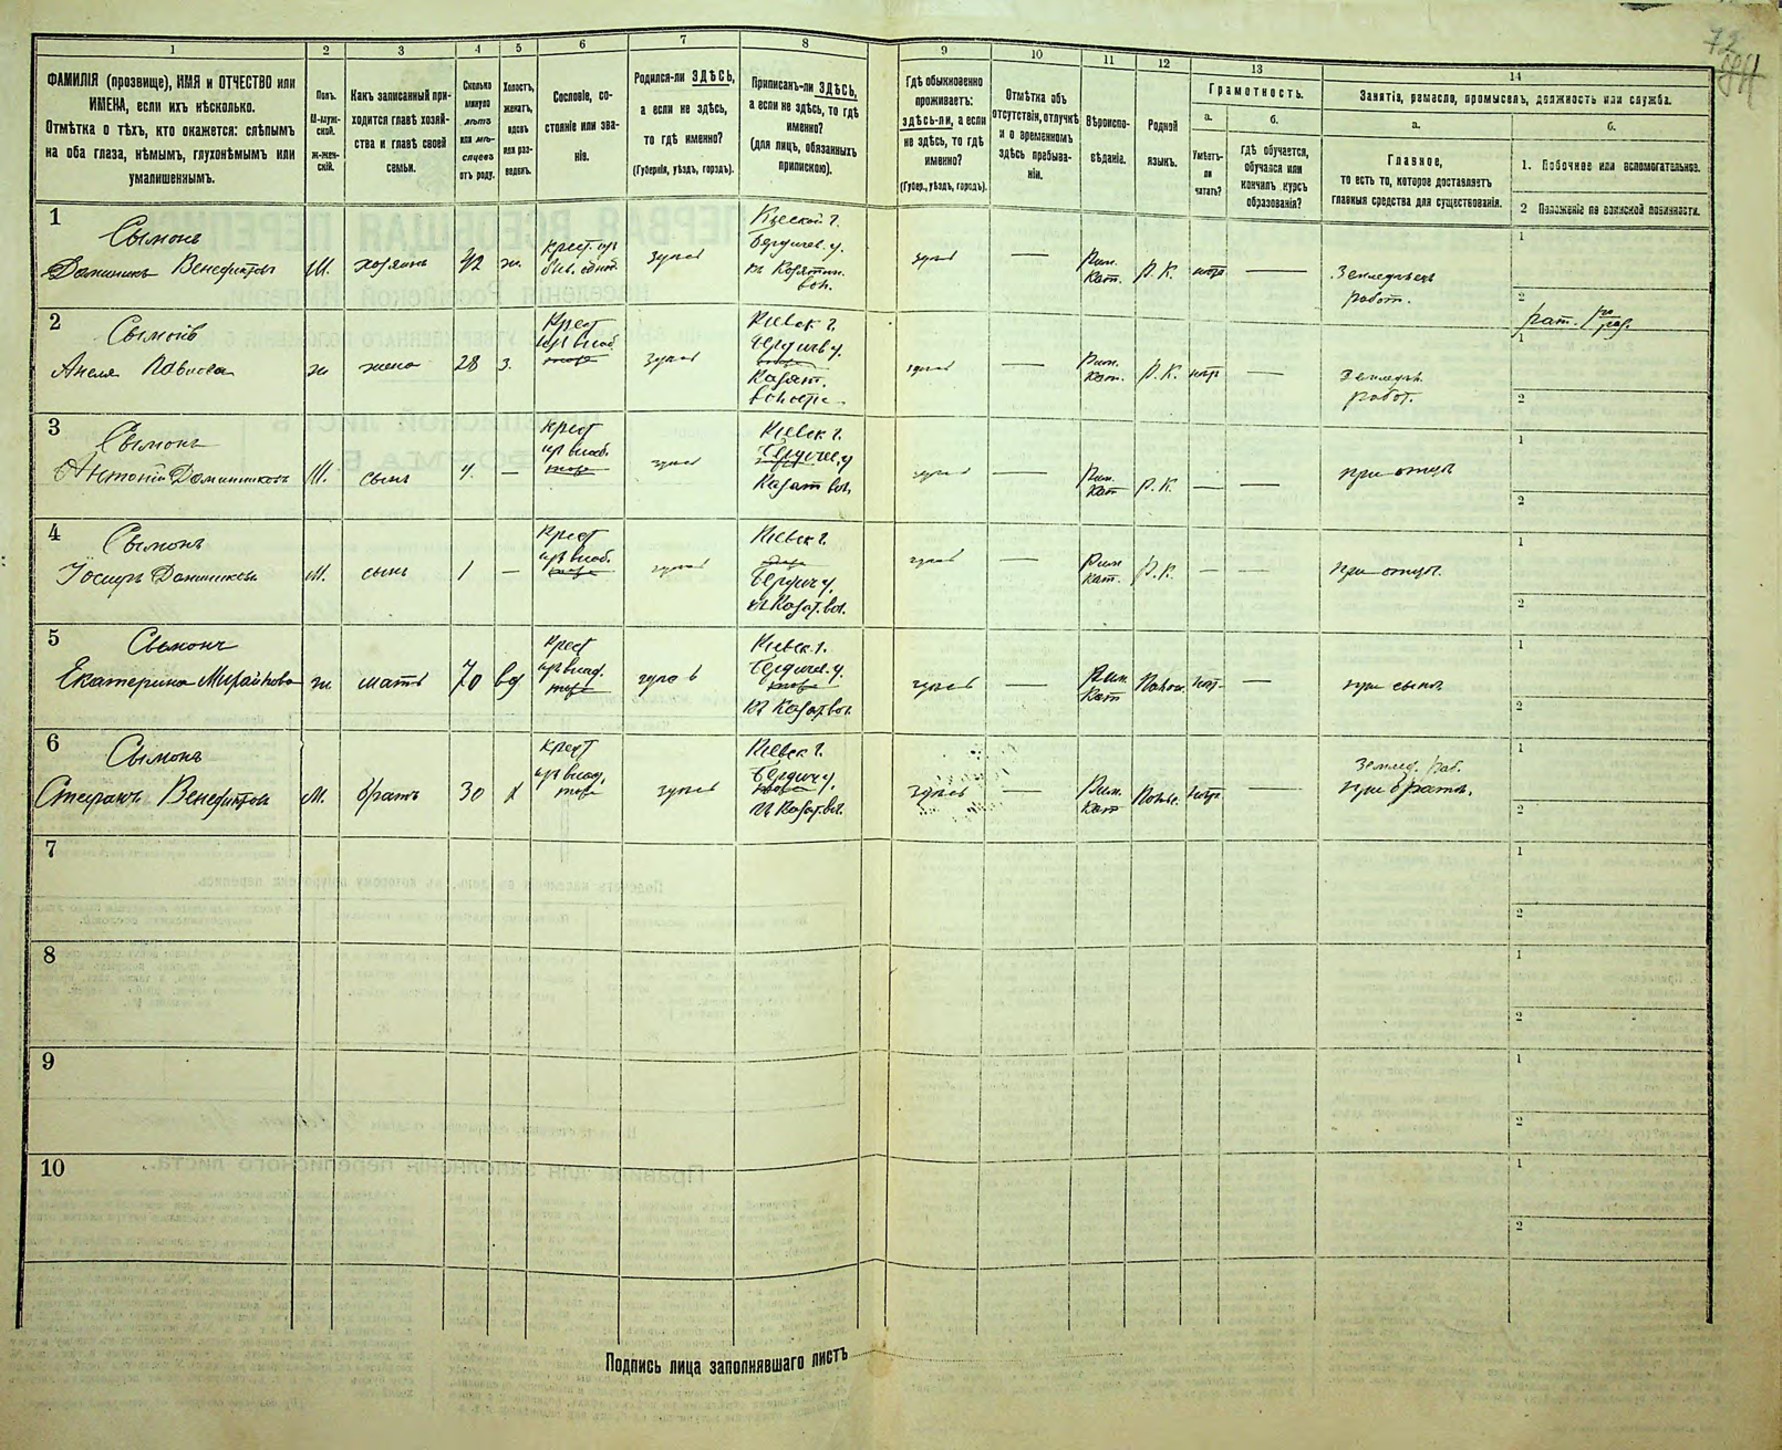 72
1 2 3 4 5 6 7 8 9 10 11 12 13 14
ФАМИЛІЯ (прозвище), ИМЯ и ОТЧЕСТВО или
ИМЕНА, если ихъ нѣсколько.
Отмѣтка о тѣхъ, кто окажется: слѣпымъ
на оба глаза, нѣмымъ, глухонѣмымъ или
умалишеннымъ.
Полъ.
М-муж-
ской.
ж-жен-
скій.
Какъ записанный при-
ходится главѣ хозяй-
ства и главѣ своей
семьи.
Сколько
минуло
лѣтъ
или мѣ-
сяцевъ
отъ роду.
Холостъ,
женатъ,
вдовъ
или раз-
веденъ.
Сословіе, со-
стояніе или зва-
ніе.
Родился-ли ЗДѢСЬ,
а если не здѣсь,
то гдѣ именно?
(Губернія, уѣздъ, городъ).
Приписанъ-ли ЗДѢСЬ,
а если не здѣсь, то гдѣ
именно?
(для лицъ, обязанныхъ
припискою).
Гдѣ обыкновенно
проживаетъ:
здѣсь-ли, а если
не здѣсь, то гдѣ
именно?
(Губер., уѣздъ, городъ).
Отмѣтка объ
отсутствіи, отлучкѣ
и о временномъ
здѣсь пребыва-
ніи.
Вѣроиспо-
вѣданіе.
Родной
языкъ.
Грамотность.
а.
Умѣетъ-
ли
читать?
б.
гдѣ обучается,
обучался или
кончилъ курсъ
образованія?
Занятіе, ремесло, промыселъ, должность или служба.
а.
Главное,
то есть то, которое доставляетъ
главныя средства для существованія.
б.
1. Побочное или вспомогательное.
2 Положеніе по воинской повинности.
1
Сымонъ
Доминикъ Венедиктовъ
М.
хозяинъ
42
ж.
крест. изъ
здѣсь
Кіевской г.
Бердичев. у.
въ Козятин.
вол.
здѣсь
—
Рим.
Кат.
Р. К.
нѣтъ
—
Земледѣлецъ
работ.
1
2
2
Сымонъ
Анеля Павлова
ж
жена
28
з.
Крест
здѣсь
Кіевск г.
Бердичев у.
Казат.
волости
здѣсь
—
Рим.
Кат.
Р. К.
нѣтъ
—
Земледѣл.
работ.
1
2
3
Сымонъ
Антоній Доминиковъ
М.
сынъ
4.
—
крест
здѣсь
Кіевск г.
Бердичев. у
Казат вол.
здѣсь
—
Рим.
Кат
Р. К.
—
—
при отцѣ
1
2
4
Сымонъ
Іосифъ Доминиковъ
М.
сынъ
1
—
Крест
здѣсь
Кіевск г.
Бердич у.
въ Козат. вол.
здѣсь
—
Рим
Кат.
Р. К.
—
—
при отцѣ.
1
2
5
Сымонъ
Екатерина Михайлова
ж.
мать
70
вд
крест
здѣсь
Кіевск. г.
Бердичев. у.
въ Козат. вол.
здѣсь
—
Рим.
Кат
Польс.
нѣт.
—
при сынѣ
1
2
6
Сымонъ
Стефанъ Венедиктовъ
М.
братъ
30
х
крест
здѣсь
Кіевск г.
Бердич у.
въ Козат. вол.
здѣсь
—
Рим.
Кат
Польс.
нѣтъ
—
Землед. раб.
при братѣ.
1
2
7
1
2
8
1
2
9
1
2
10
1
2
Подпись лица заполнявшаго листъ